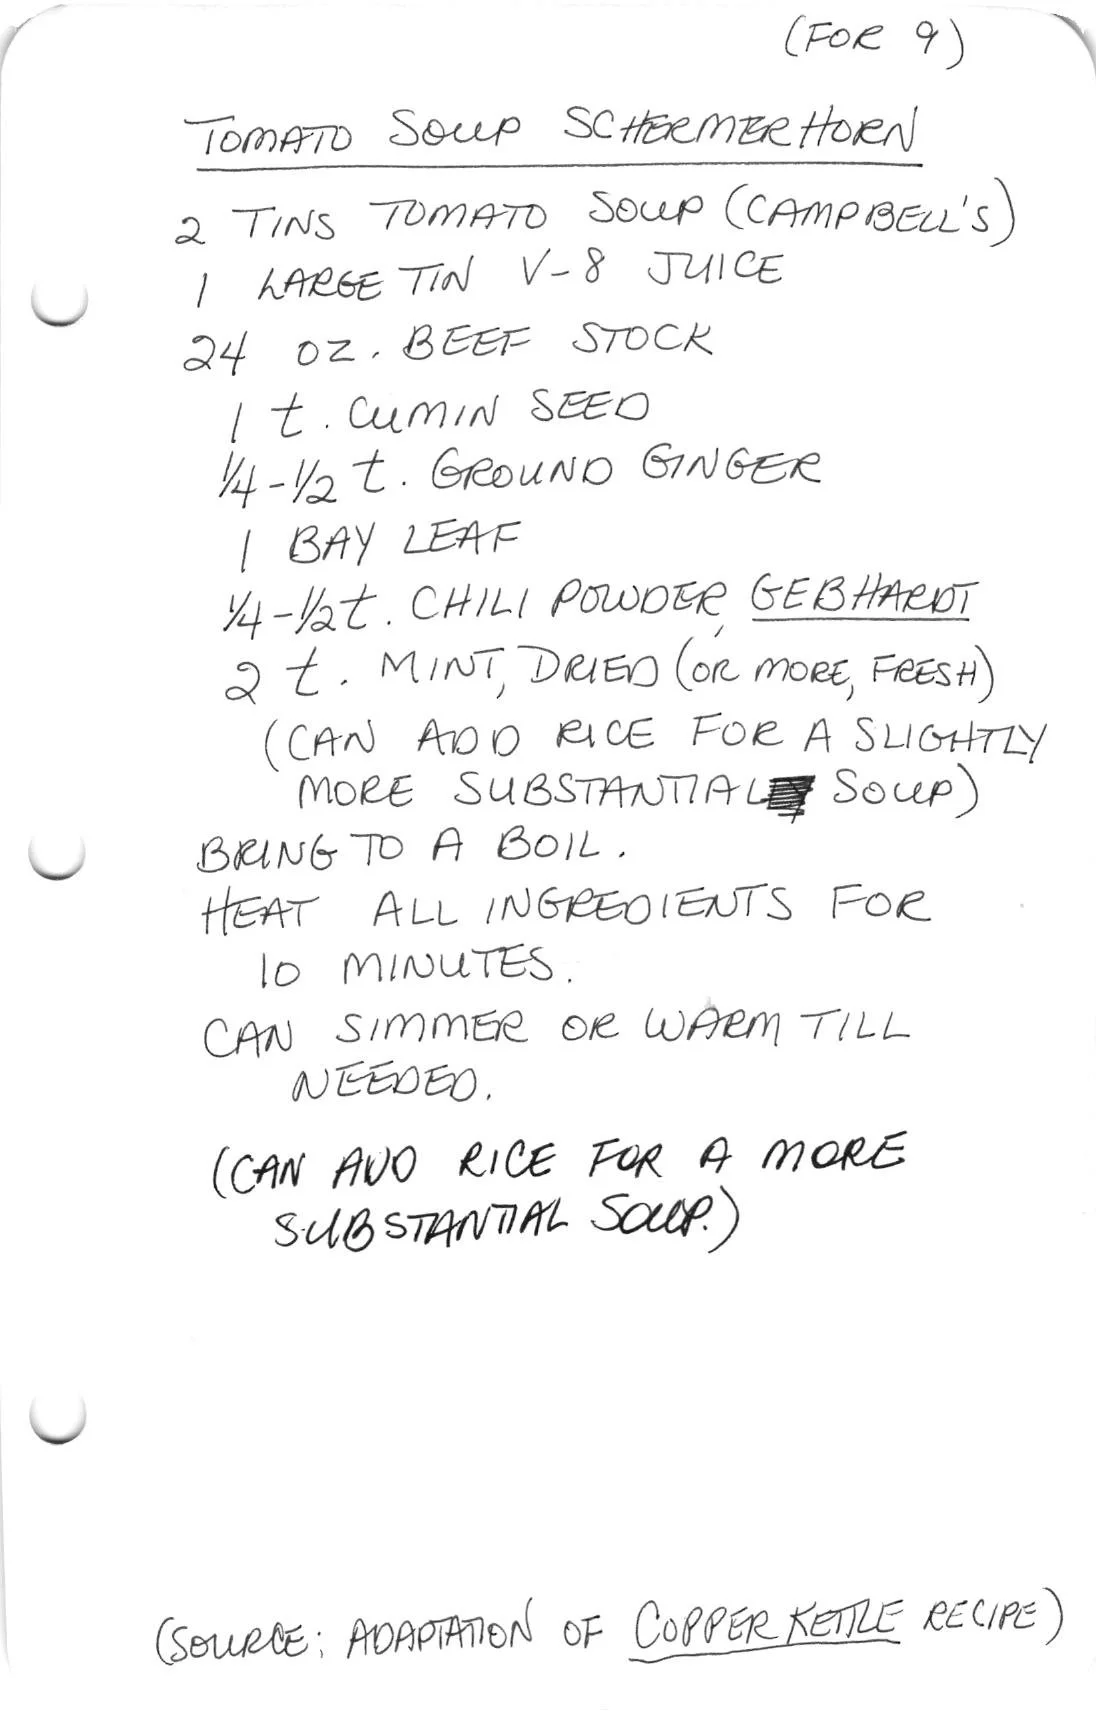 (FOR 9)
TOMATO SOUP SCHERMERHORN
2 TINS TOMATO SOUP (CAMPBELL'S)
1 LARGE TIN V-8 JUICE
24 OZ. BEEF STOCK
1 t. CUMIN SEED
1/4-1/2 t. GROUND GINGER
1 BAY LEAF
1/4-1/2 t. CHILI POWDER, GEBHARDT
2 t. MINT, DRIED (OR MORE, FRESH)
(CAN ADD RICE FOR A SLIGHTLY
MORE SUBSTANTIAL SOUP)
BRING TO A BOIL.
HEAT ALL INGREDIENTS FOR
10 MINUTES.
CAN SIMMER OR WARM TILL
NEEDED.
(CAN ADD RICE FOR A MORE
SUBSTANTIAL SOUP.)
(SOURCE: ADAPTATION OF COPPER KETTLE RECIPE)